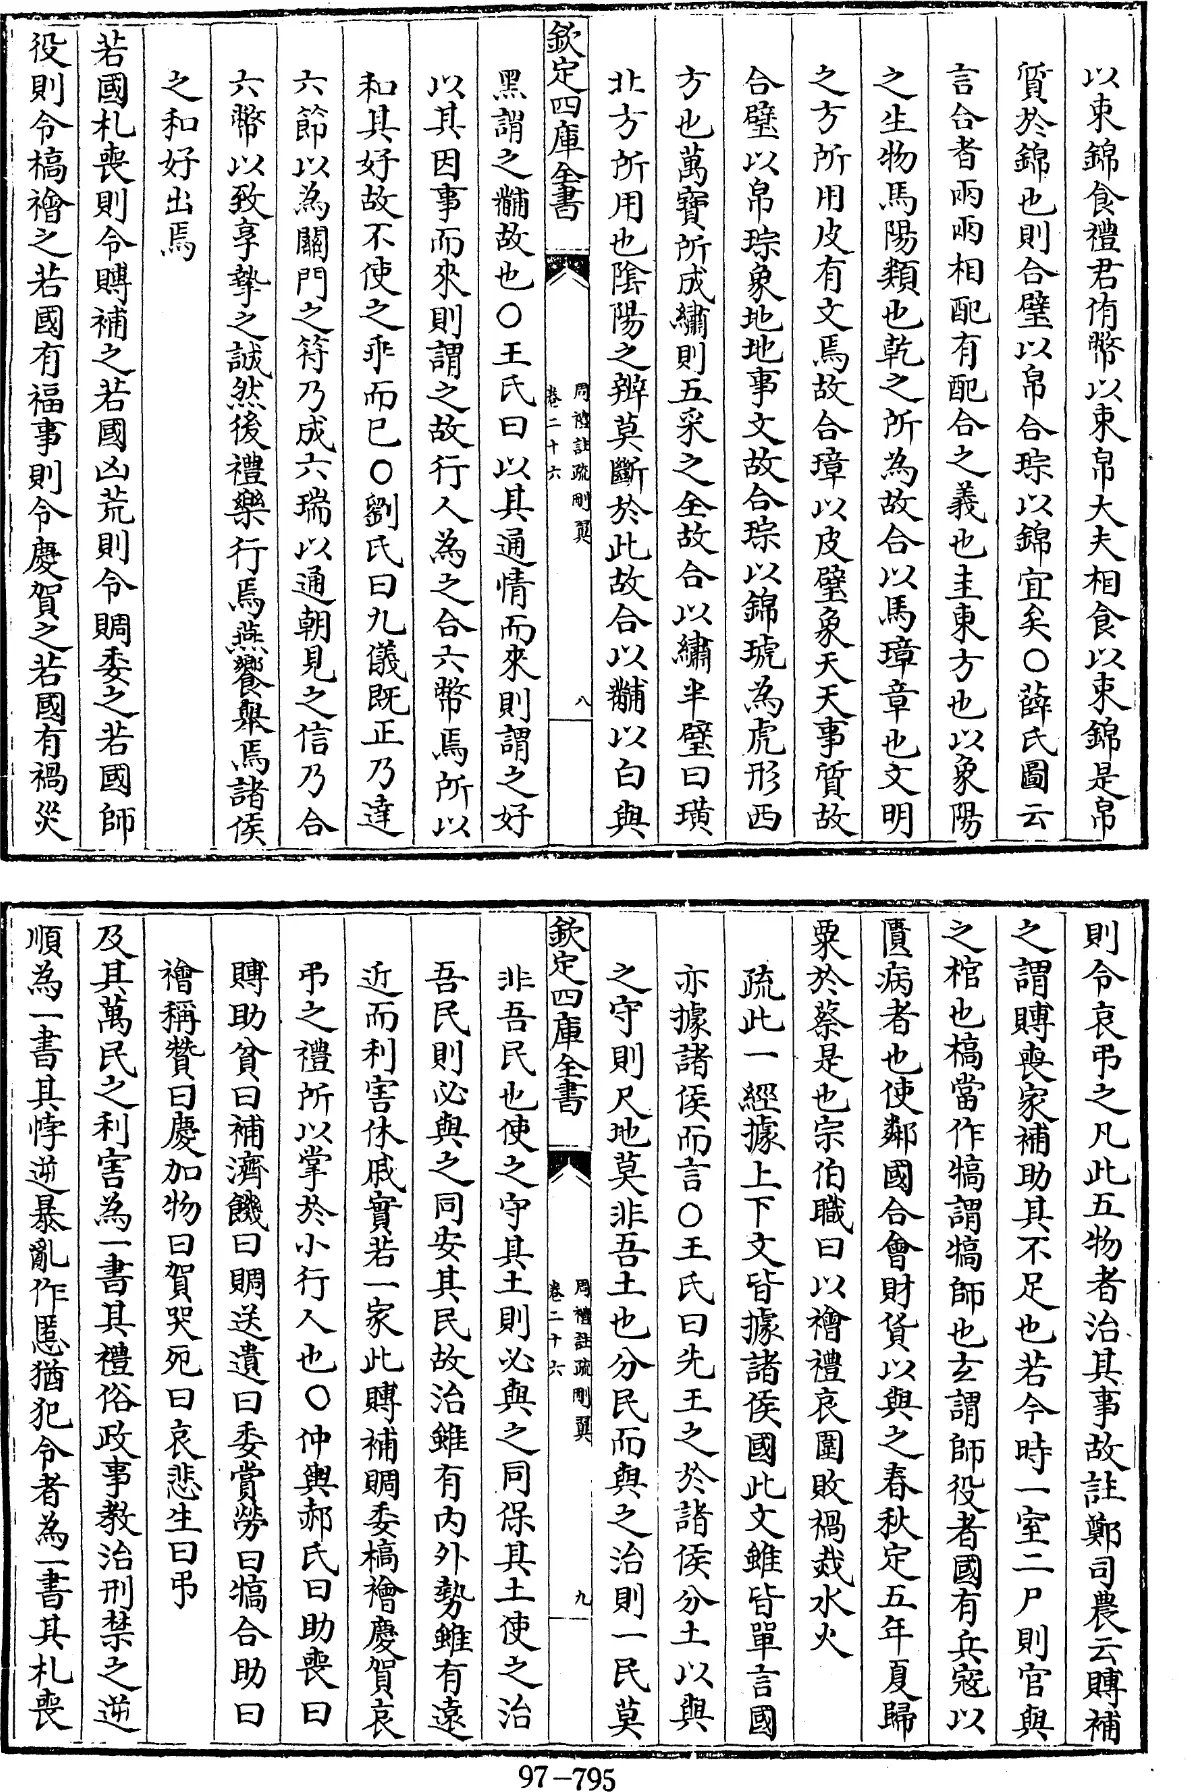 以束錦食禮君侑幣以束帛大夫相食以束錦是帛
質於錦也則合璧以帛合琮以錦宜矣○薛氏圖云
言合者兩兩相配有配合之義也圭東方也以象陽
之生物馬陽類也乾之所為故合以馬璋章也文明
之方所用皮有文焉故合璋以皮璧象天天事質故
合璧以帛琮象地地事文故合琮以錦琥為虎形西
方也萬寶所成繡則五采之全故合以繡半璧曰璜
北方所用也陰陽之辨莫斷於此故合以黼以白與
欽定四庫全書
周禮註疏刪翼
卷二十六
八
黑謂之黼故也○王氏曰以其通情而來則謂之好
以其因事而來則謂之故行人為之合六幣焉所以
和其好故不使之乖而已○劉氏曰九儀既正乃達
六節以為關門之符乃成六瑞以通朝見之信乃合
六幣以致享摯之誠然後禮樂行焉燕饗舉焉諸侯
之和好出焉
若國札喪則令賻補之若國凶荒則令賙委之若國師
役則令槁禬之若國有福事則令慶賀之若國有禍烖
則令哀弔之凡此五物者治其事故註鄭司農云賻補
之謂賻喪家補助其不足也若今時一室二尸則官與
之棺也槁當作犒謂犒師也玄謂師役者國有兵寇以
匱病者也使鄰國合會財貨以與之春秋定五年夏歸
粟於蔡是也宗伯職曰以禬禮哀圍敗禍烖水火
疏此一經據上下文皆據諸侯國此文雖皆單言國
亦據諸侯而言○王氏曰先王之於諸侯分土以與
之守則尺地莫非吾土也分民而與之治則一民莫
欽定四庫全書
周禮註疏刪翼
卷二十六
九
非吾民也使之守其土則必與之同保其土使之治
吾民則必與之同安其民故治雖有內外勢雖有遠
近而利害休戚實若一家此賻補賙委槁禬慶賀哀
弔之禮所以掌於小行人也○仲輿郝氏曰助喪曰
賻助貧曰補濟饑曰賙送遺曰委賞勞曰犒合助曰
禬稱贊曰慶加物曰賀哭死曰哀悲生曰弔
及其萬民之利害為一書其禮俗政事教治刑禁之逆
順為一書其悖逆暴亂作慝猶犯令者為一書其札喪
97-795